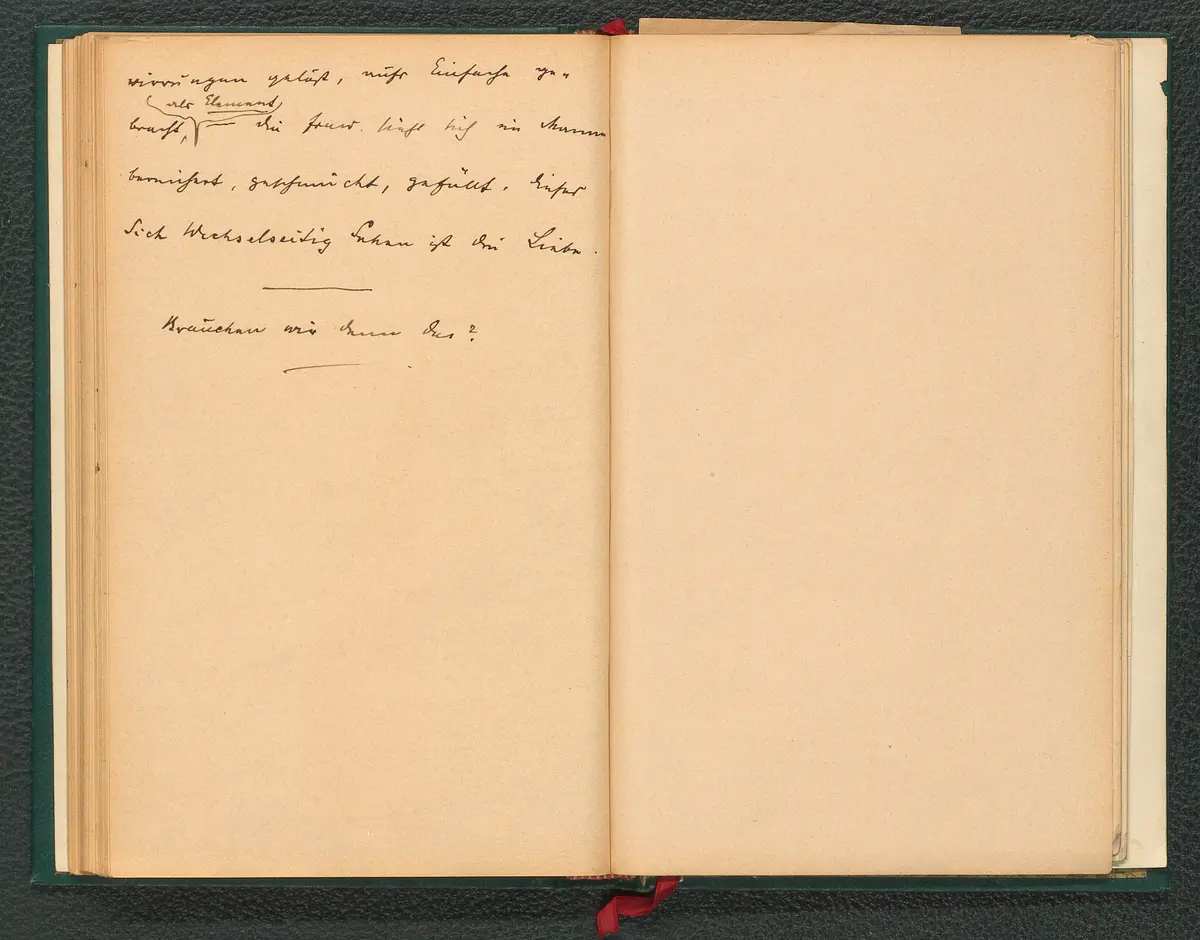 wirrungen gelöst, aufs Einfache ge-
als Element
bracht, — die Frau sieht sich im Manne
bereichert, geschmückt, gefüllt. Dieses
Sich Wechselseitig Sehen ist die Liebe.
Brauchen wir denn das?